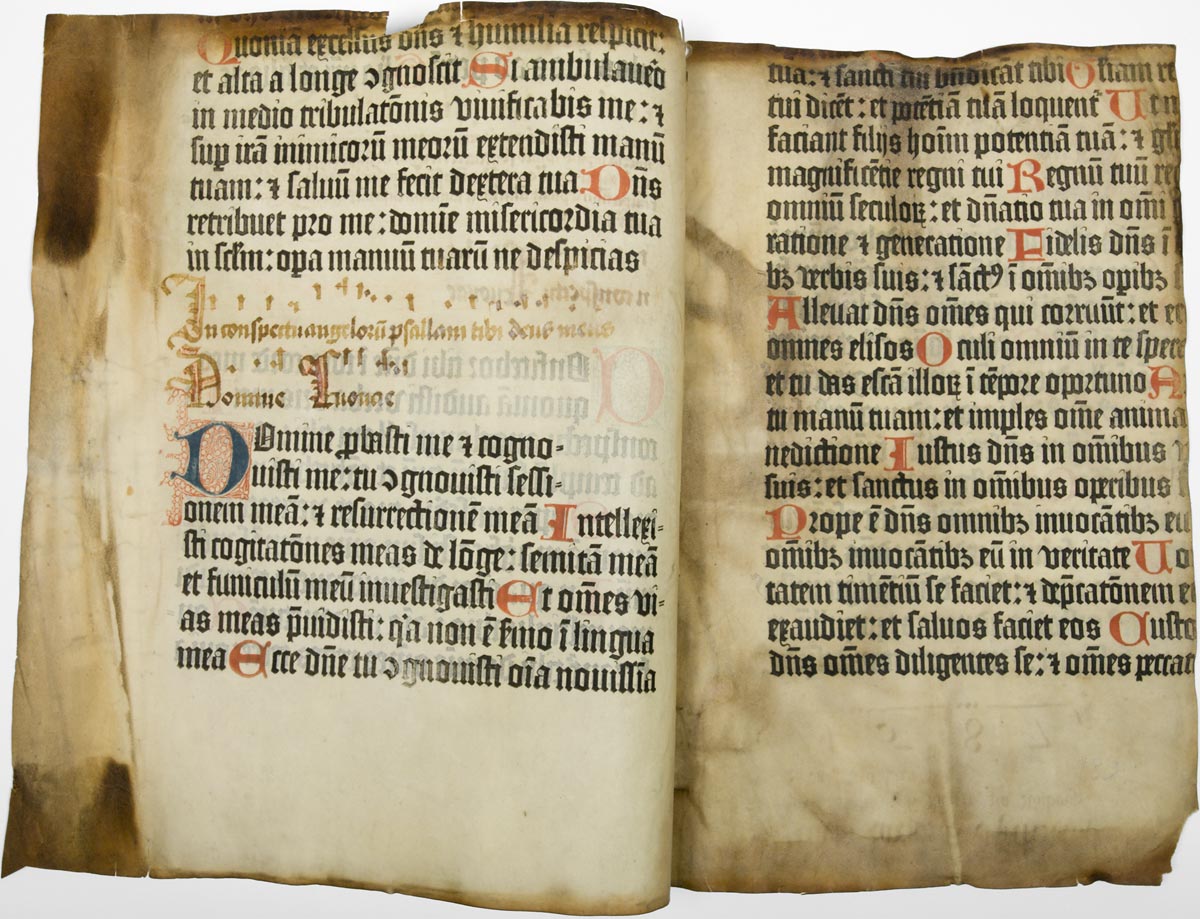 Quoniā excelsus dn̄s ⁊ humilia respicit:
et alta a longe ꝯgnoscit Si ambulauēo
in medio tribulatōnis viuificabis me: ⁊
suꝑ irā inimicorū meorū extendisti manū
tuam: ⁊ saluū me fecit dextera tua Dn̄s
retribuet pro me: domīe misericordia tua
in sclm̄: oꝑa manuū tuarū ne despicias
In conspectu angelorū psallam tibi deus meus
Domine Euouae
Domine ꝓbasti me ⁊ cogno-
uisti me: tu ꝯgnouisti sessi-
onem meā: ⁊ resurrectionē meā Intellexi-
sti cogitatōnes meas de lōge: semitā meā
et funiculū meū inuestigasti Et om̄es vi-
as meas p̄uidisti: q̄a non ē sm̄o ī lingua
mea Ecce dn̄e tu ꝯgnouisti oīa nouissīa
tua: ⁊ sancti tui bn̄dicāt tibi Gloriam re
tui dicēt: et potētiā tuā loquent᷑ Ut n
faciant filijs hoīm potentiā tuā: ⁊ gl
magnificētie regni tui Regnū tuū re
omniū seculoꝝ: et dn̄atio tua in om̄i
ratione ⁊ generatione Fidelis dn̄s ī
bꝫ verbis suis: ⁊ sāctꝰ ī om̄ibꝫ oꝑibꝫ
Alleuat dn̄s om̄es qui corruūt: et e
omnes elisos Oculi omniū in te spere
et tu das escā illoꝝ ī tēpore oportuno A
tu manū tuam: et imples om̄e anima
nedictione Iustus dn̄s in om̄ibus v
suis: et sanctus in om̄ibus operibus
Prope ē dn̄s omnibꝫ inuocātibꝫ eu
om̄ibꝫ inuocātibꝫ eū in veritate Uo
tatem timētiū se faciet: ⁊ dep̄catōnem e
exaudiet: et saluos faciet eos Custo
dn̄s om̄es diligentes se: ⁊ om̄es peccat